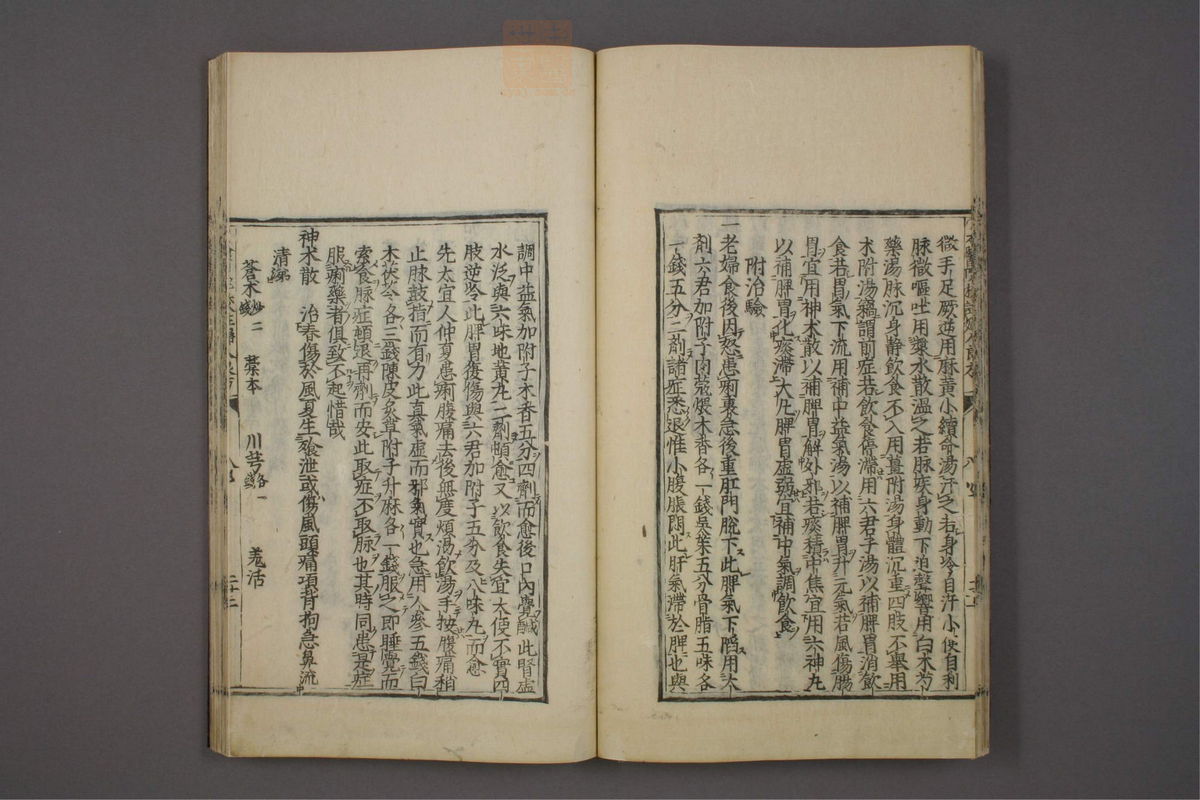 微手足厥逆用麻黄小續命湯汗之若身冷自汗小便自利
脉微嘔吐用漿水散溫之若脉疾身動下迫聲響用白朮芍
藥湯脉沉身静飲食不入用薑附湯身體沉重四肢不舉用
朮附湯竊謂前症若飲食停滯用六君子湯以補脾胃消飲
食若胃氣下流用補中益氣湯以補脾胃升元氣若風傷腸
胃宜用神朮散以補脾胃解外邪若痰積中焦宜用六神丸
以補脾胃化痰滯大凡脾胃虚弱宜補中氣調飲食
附治驗
一老婦食後因怒患痢裏急後重肛門脫下此脾氣下陷用大
劑六君加附子肉蔲煨木香各一錢吳茱五分骨脂五味各
一錢五分二劑諸症悉退惟小腹脹悶此肝氣滯於脾也與
調中益氣加附子木香五分四劑而愈後口內覺鹹此腎虚
水泛與六味地黄丸二劑頓愈又以飲食失宜大便不實四
肢逆冷此脾胃復傷與六君加附子五分及八味丸而愈
先太宜人仲夏患痢腹痛去後無度煩渴飲湯手按腹痛稍
止脉鼓指而有力此真氣虛而邪氣實也急用人參五錢白
朮茯苓各三錢陳皮炙草附子升麻各一錢服之即睡覺而
索食脉症頓退再劑而安此取症不取脉也其時同患是症
服痢藥者俱致不起惜哉
神朮散 治春傷於風夏生飱泄或傷風頭痛項背拘急鼻流
清涕
蒼朮 二錢 藁本 川芎 各一錢 羌活